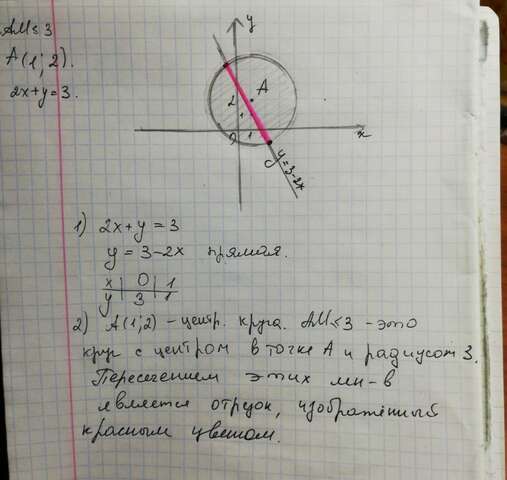 AM ≤ 3
A(1; 2).
2x+y=3.
y
A
2
1
0
1
x
y=3-2x
1) 2x+y=3
y=3-2x прямая.
x | 0 | 1
y | 3 | 1
2) A(1;2) - центр. круга. AM ≤ 3 - это
круг с центром в точке A и радиусом 3.
Пересечением этих мн-в
является отрезок, изображённый
красным цветом.